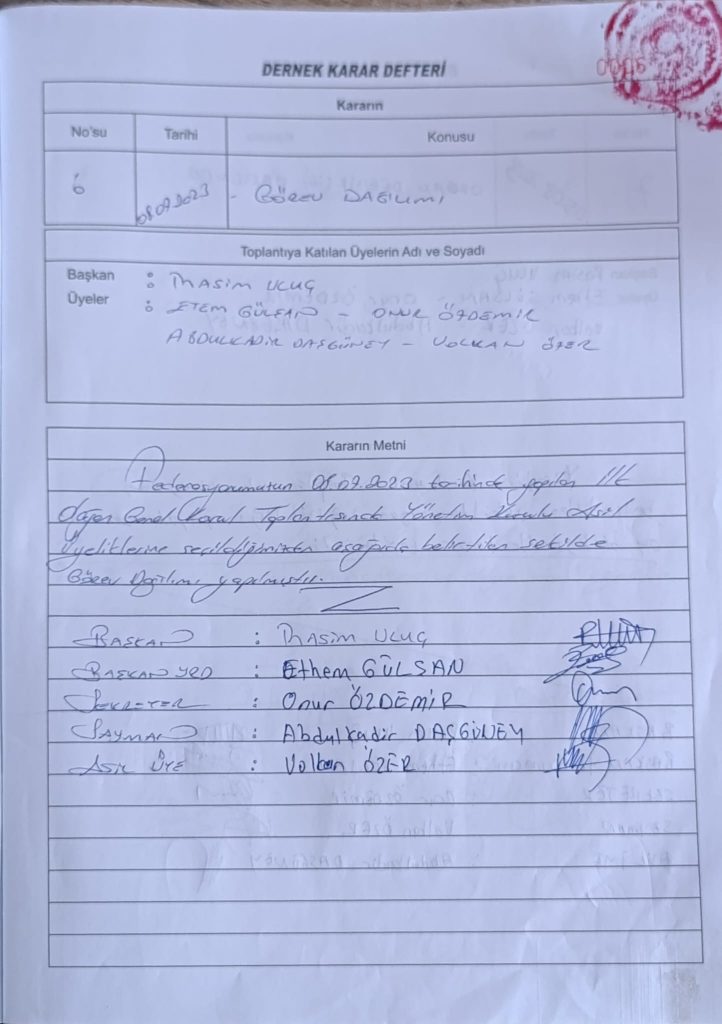 0006
DERNEK KARAR DEFTERİ
Kararın
No'su Tarihi Konusu
6 08.09.2023 - GÖREV DAĞILIMI
Toplantıya Katılan Üyelerin Adı ve Soyadı
Başkan : RASİM UÇUÇ
Üyeler : ETEM GÜLSAN - ONUR ÖZDEMİR
ABDULKADİR DAŞGÜNEY - VOLKAN ÖZER
Kararın Metni
Federasyonumuzun 08.09.2023 tarihinde yapılan ilk
Olağan Genel Kurul Toplantısında Yönetim Kurulu Asil
Üyeliklerine seçildiğimizden aşağıda belirtilen şekilde
Görev Dağılımı yapılmıştır.
BAŞKAN : RASİM UÇUÇ
BAŞKAN YRD : Ethem GÜLSAN
SEKRETER : Onur ÖZDEMİR
SAYMAN : Abdulkadir DAŞGÜNEY
ASİL ÜYE : Volkan ÖZER